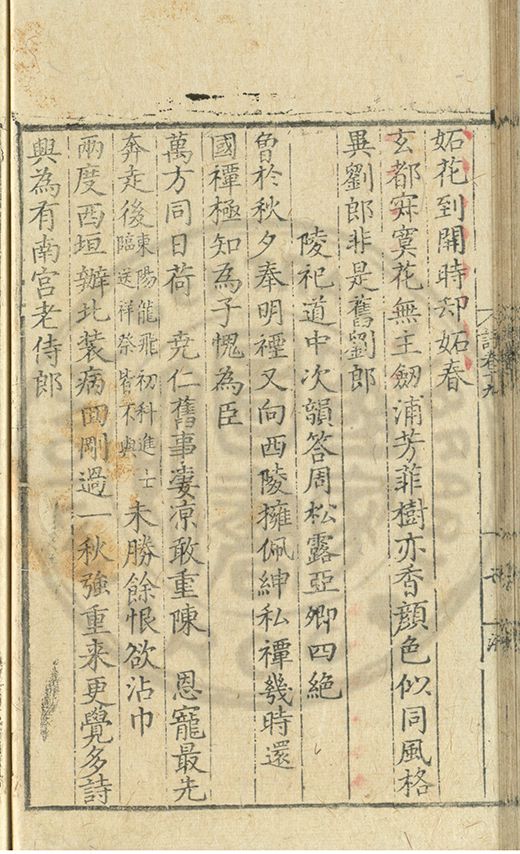 妬花到開時却妬春
玄都寂寞花無主劒浦芳菲樹亦香顏色似同風格
異劉郎非是舊劉郎
陵祀道中次韻答周松露亞卿四絶
曾於秋夕奉明禋又向西陵擁佩紳私禫幾時還
國禫極知為子愧為臣
萬方同日荷 堯仁舊事凄凉敢重陳 恩寵最先
奔走後東陽龍飛初科進士臨送祥祭皆不與未勝餘恨欲沾巾
兩度西垣辦北裝病回剛過一秋強重來更覺多詩
興為有南宫老侍郎
詩卷十九